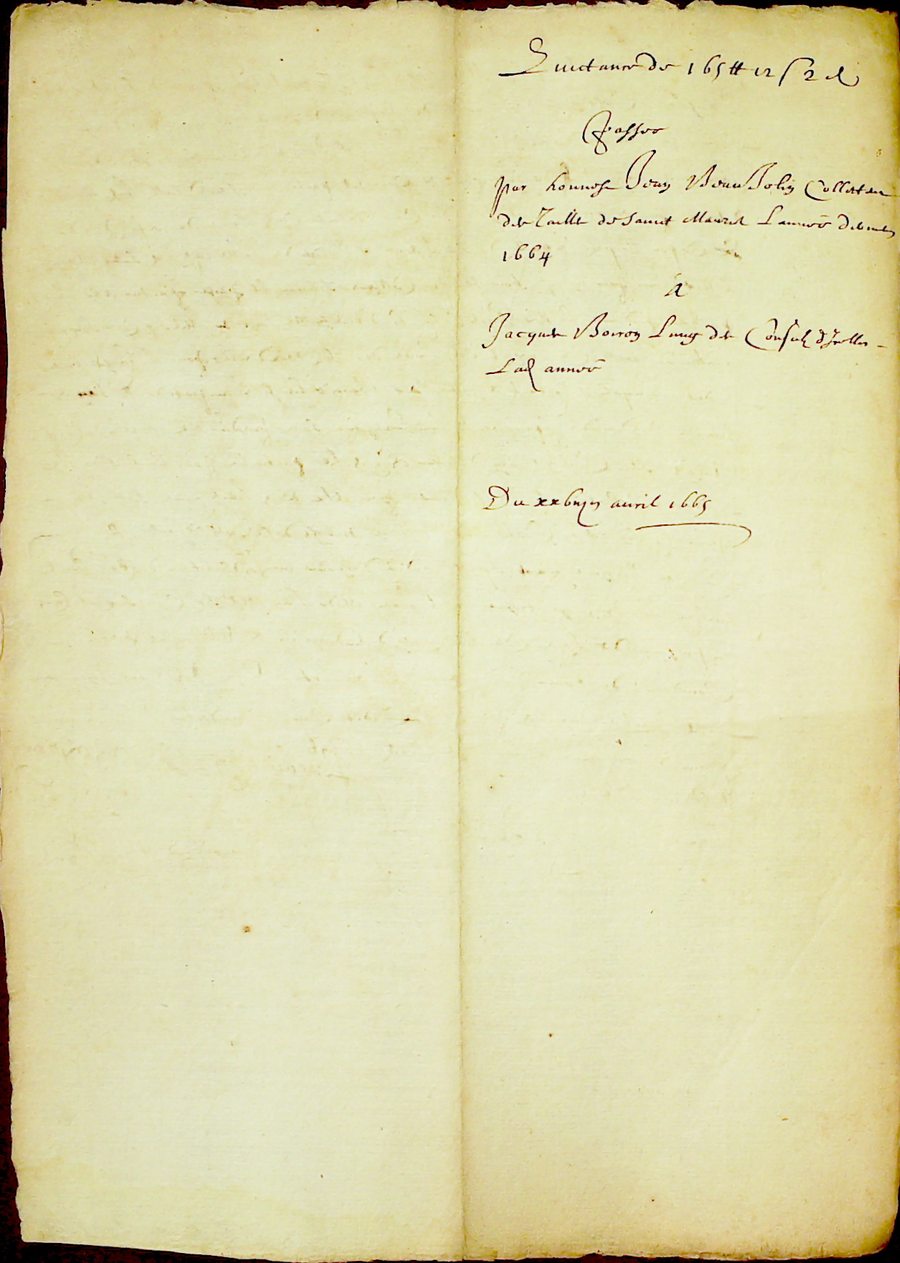 Quictance de 165 ₶ 12 ſ 2 d
Passee
par honneste Jean Beau Jolin Collecteur
des Taille de Sainct Maurice Lannee derniere
1664
A
Jacques Boiron Lung des Consulz
Lad annee
Du xxbiij avril 1665